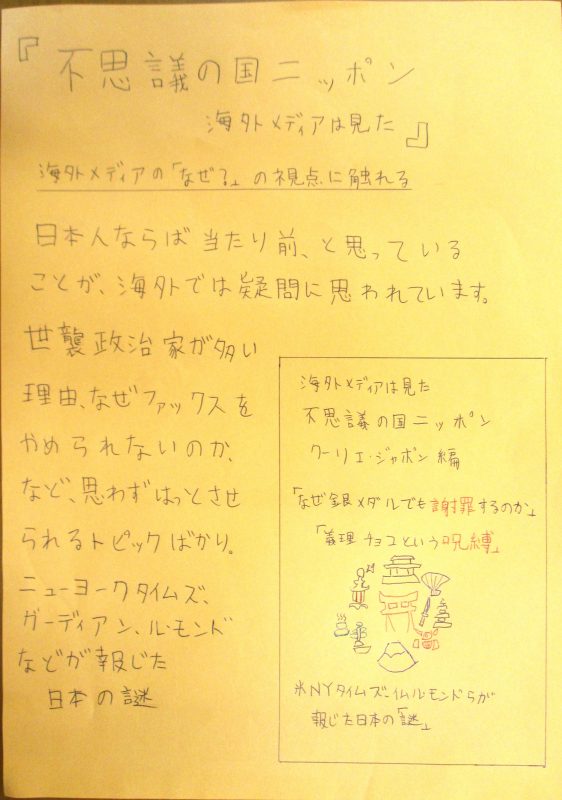 『不思議の国ニッポン
海外メディアは見た』
海外メディアの「なぜ?」の視点に触れる
日本人ならば当たり前、と思っている
ことが、海外では疑問に思われています。
世襲政治家が多い
理由、なぜファックスを
やめられないのか、
など、思わずはっとさせ
られるトピックばかり。
ニューヨークタイムズ、
ガーディアン、ル・モンド
などが報じた
日本の謎
海外メディアは見た
不思議の国ニッポン
クーリエ・ジャポン編
「なぜ銀メダルでも謝罪するのか」
「義理チョコという呪縛」
米NYタイムズ、仏ルモンドらが
報じた日本の「謎」